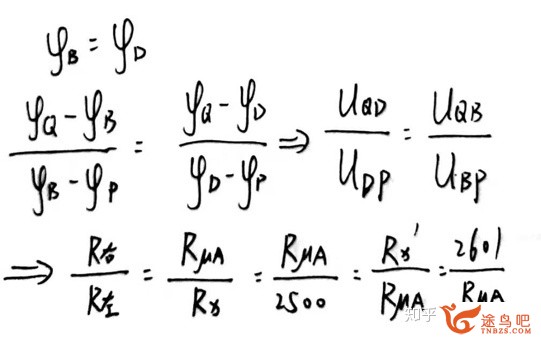 φB = φD
(φQ - φB)/(φB - φP) = (φQ - φD)/(φD - φP) ⇒ UQD/UDP = UQB/UBP
⇒ R右/R左 = RμA/Rx = RμA/2500 = Rx'/RμA = 2601/RμA
知乎
途鸟吧
TNBZS.COM